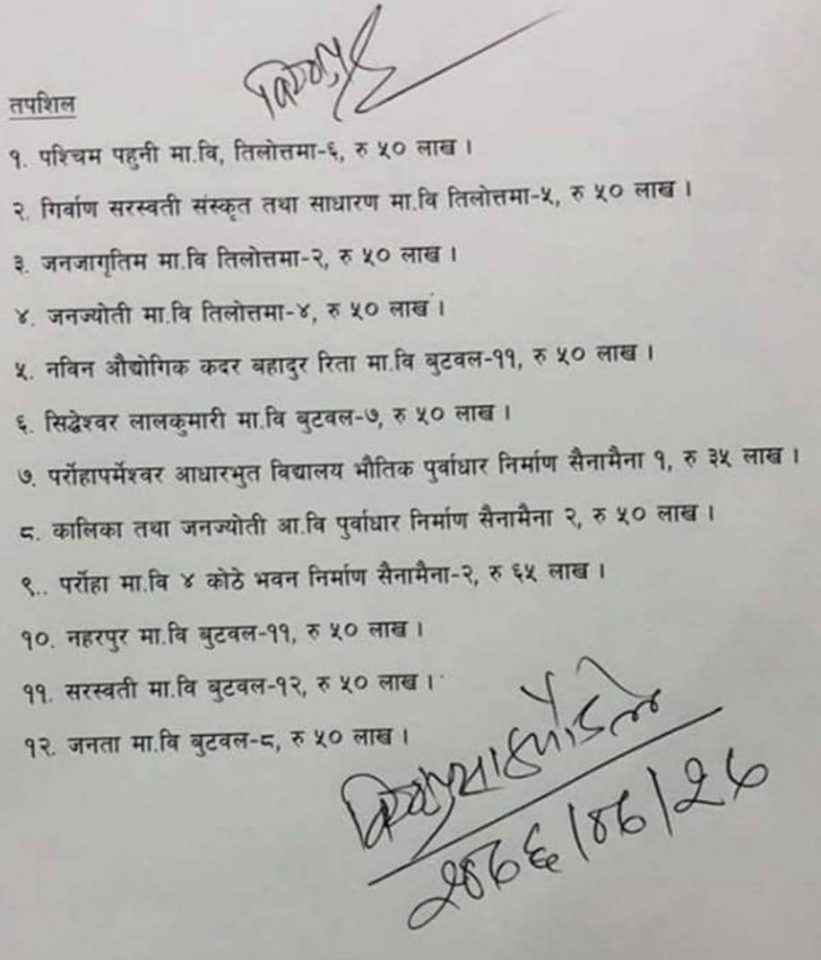 तपशिल
१. पश्चिम पहुनी मा.वि, तिलोत्तमा-६, रु ५० लाख ।
२. गिर्वाण सरस्वती संस्कृत तथा साधारण मा.वि तिलोत्तमा-५, रु ५० लाख ।
३. जनजागृतिम मा.वि तिलोत्तमा-२, रु ५० लाख ।
४. जनज्योती मा.वि तिलोत्तमा-४, रु ५० लाख ।
५. नविन औद्योगिक कदर बहादुर रिता मा.वि बुटवल-११, रु ५० लाख ।
६. सिद्धेश्वर लालकुमारी मा.वि बुटवल-७, रु ५० लाख ।
७. पर्रोहापर्मेश्वर आधारभुत विद्यालय भौतिक पुर्वाधार निर्माण सैनामैना १, रु ३५ लाख ।
८. कालिका तथा जनज्योती आ.वि पुर्वाधार निर्माण सैनामैना २, रु ५० लाख ।
९.. पर्रोहा मा.वि ४ कोठे भवन निर्माण सैनामैना-२, रु ६५ लाख ।
१०. नहरपुर मा.वि बुटवल-११, रु ५० लाख ।
११. सरस्वती मा.वि बुटवल-१२, रु ५० लाख ।
१२. जनता मा.वि बुटवल-८, रु ५० लाख ।